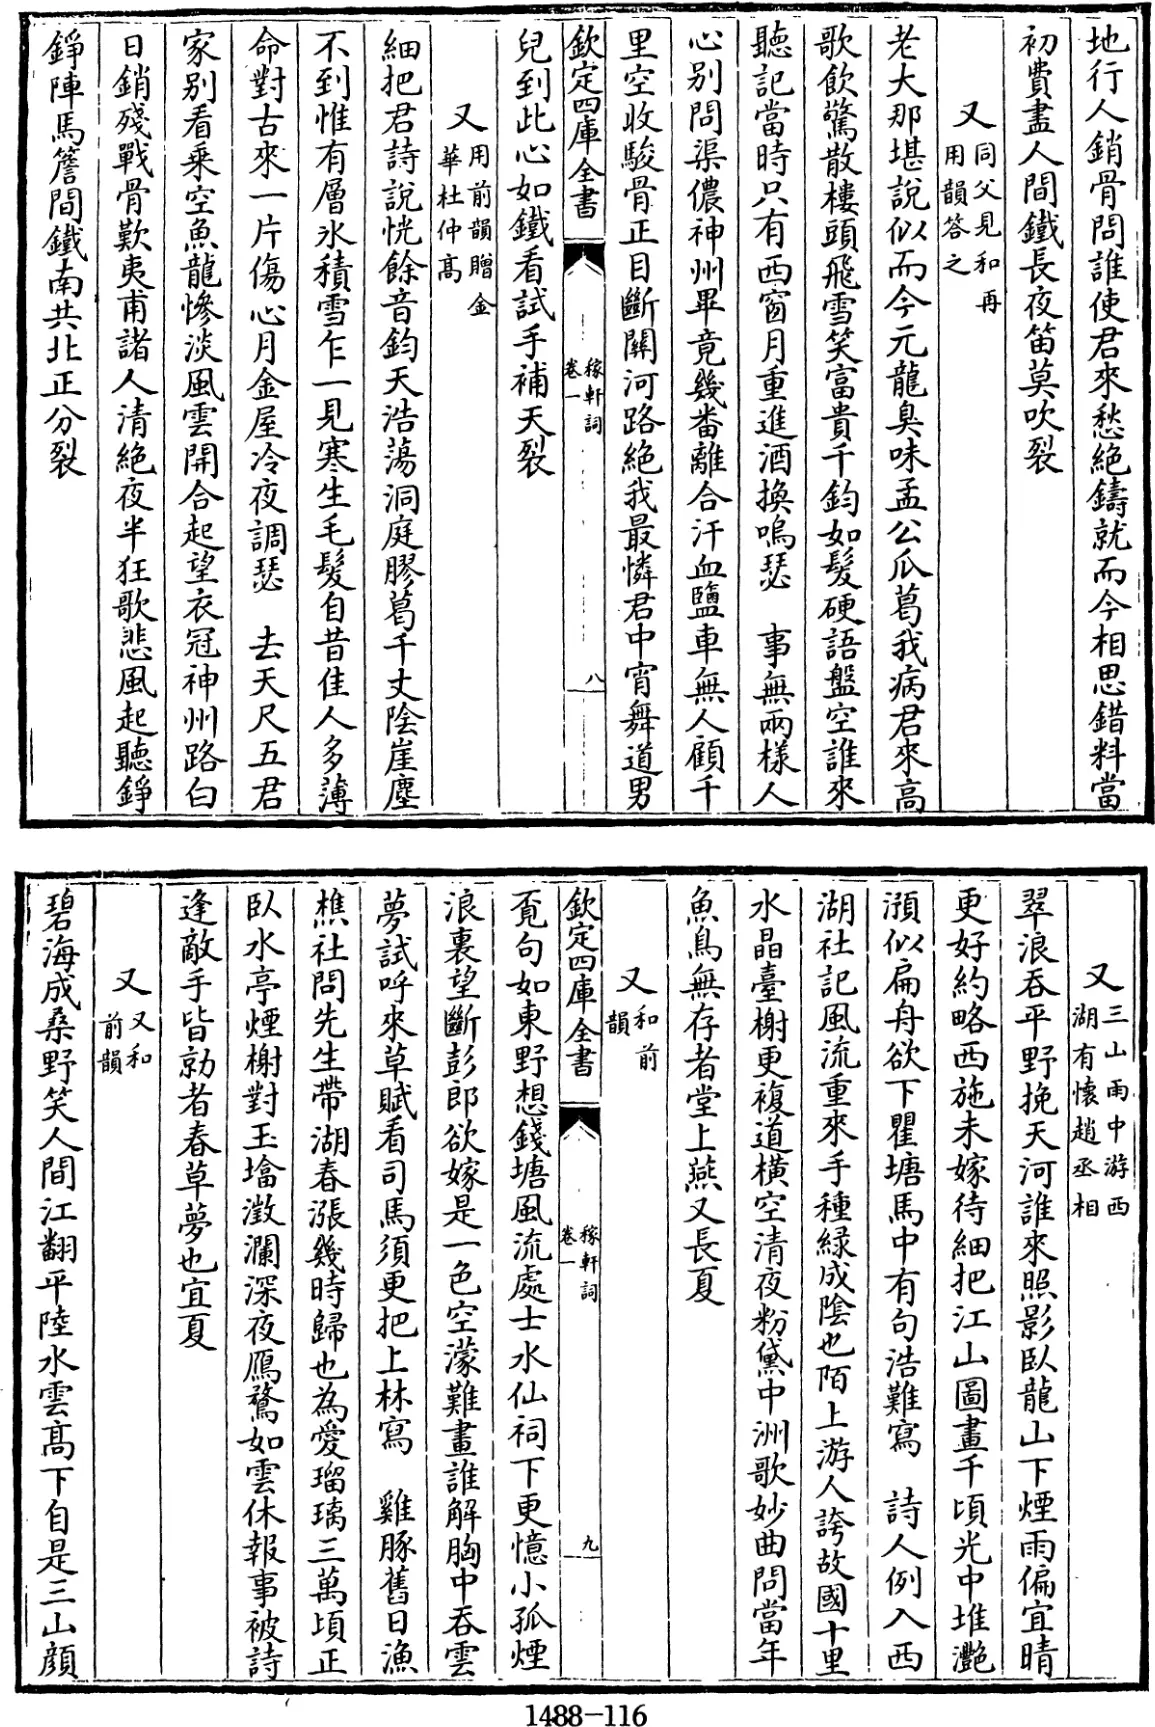 地行人銷骨問誰使君來愁絕鑄就而今相思錯料當
初費盡人間鐵長夜笛莫吹裂
又同父見和再
用韻答之
老大那堪說似而今元龍臭味孟公瓜葛我病君來高
歌飲驚散樓頭飛雪笑富貴千鈞如髮硬語盤空誰來
聽記當時只有西窗月重進酒換嗚瑟　事無兩樣人
心別問渠儂神州畢竟幾番離合汗血鹽車無人顧千
里空收駿骨正目斷關河路絕我最憐君中宵舞道男
欽定四庫全書
稼軒詞
卷一
八
兒到此心如鐵看試手補天裂
又用前韻贈金
華杜仲高
細把君詩說恍餘音鈞天浩蕩洞庭膠葛千丈陰崖塵
不到惟有層冰積雪乍一見寒生毛髮自昔佳人多薄
命對古來一片傷心月金屋冷夜調瑟　去天尺五君
家別看乘空魚龍慘淡風雲開合起望衣冠神州路白
日銷殘戰骨歎夷甫諸人清絕夜半狂歌悲風起聽錚
錚陣馬簷間鐵南共北正分裂
又三山雨中游西
湖有懷趙丞相
翠浪吞平野挽天河誰來照影臥龍山下煙雨偏宜晴
更好約略西施未嫁待細把江山圖畫千頃光中堆灧
澦似扁舟欲下瞿塘馬中有句浩難寫　詩人例入西
湖社記風流重來手種綠成陰也陌上游人誇故國十里
水晶臺榭更複道橫空清夜粉黛中洲歌妙曲問當年
魚鳥無存者堂上燕又長夏
又和前
韻
欽定四庫全書
稼軒詞
卷一
九
覓句如東野想錢塘風流處士水仙祠下更憶小孤煙
浪裏望斷彭郎欲嫁是一色空濛難畫誰解胸中吞雲
夢試呼來草賦看司馬須更把上林寫　雞豚舊日漁
樵社問先生帶湖春漲幾時歸也為愛瑠璃三萬頃正
臥水亭煙榭對玉塔澂瀾深夜鴈鶩如雲休報事被詩
逢敵手皆勍者春草夢也宜夏
又又和
前韻
碧海成桑野笑人間江翻平陸水雲高下自是三山顔
1488-116